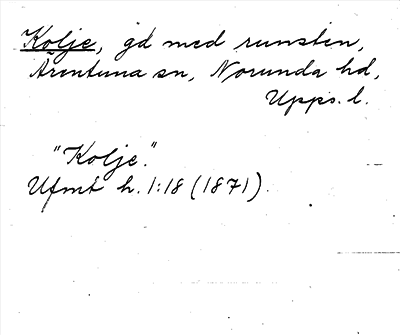 Kolje, gd med runsten,
Ärentuna sn, Norunda hd,
Upps. l.
"Kolje."
Ufmt h. 1:18 (1871).